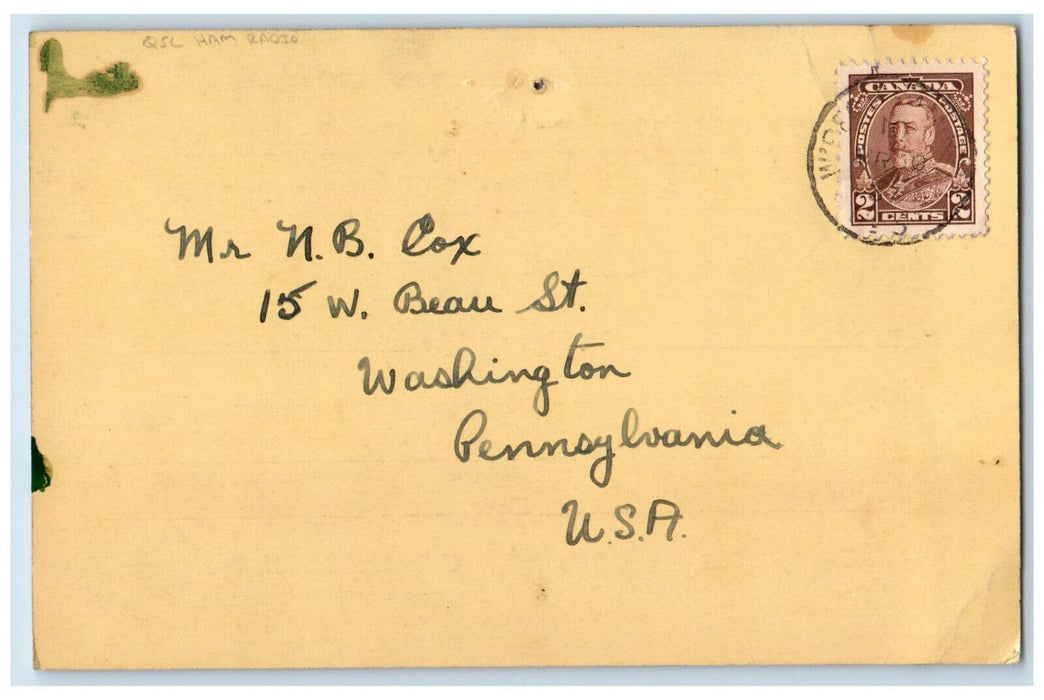 QSL HAM RADIO
CANADA
POSTES POSTAGE
2 CENTS 2
Mr N.B. Cox
15 W. Beau St.
Washington
Pennsylvania
U.S.A.